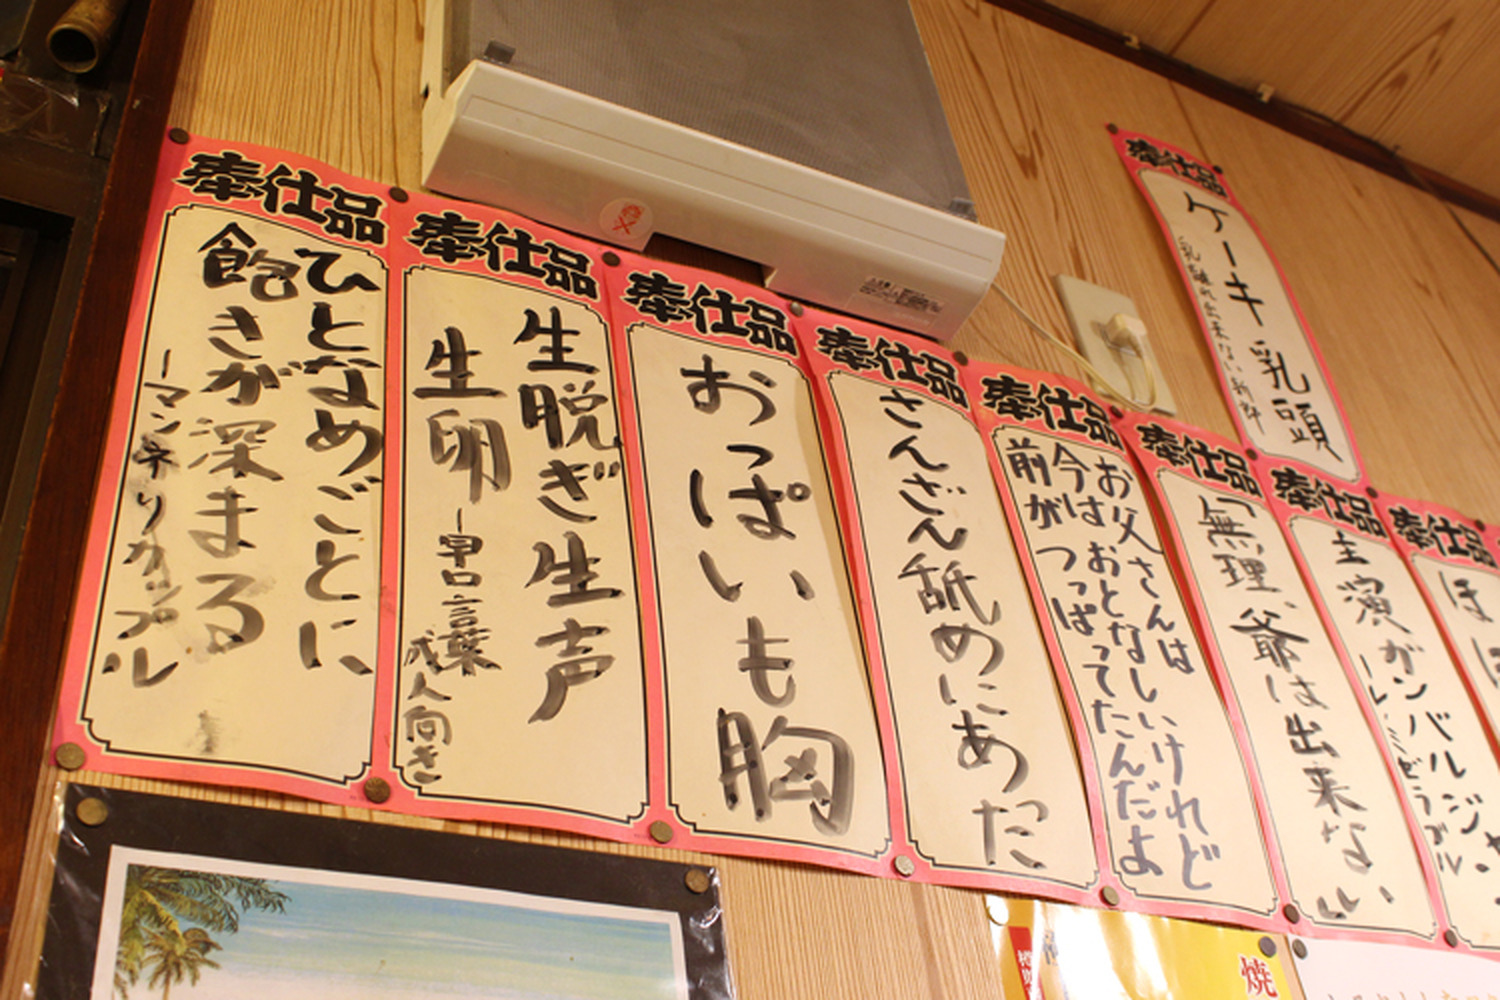 奉仕品
ひとなめごとに
飽きが深まる
ーマンネリカップル
奉仕品
生脱ぎ生声
生卵
ー早口言葉
成人向き
奉仕品
おっぱいも胸
奉仕品
さんざん舐めにあた
奉仕品
お父さんは
今は おとなしいけれど
前が つっぱってたんだよ
奉仕品
無理、爺は出来ない
奉仕品
主演ガンバルジャ
奉仕品
ほ
奉仕品
ケーキ乳頭
乳離れ出来ない新郎
焼